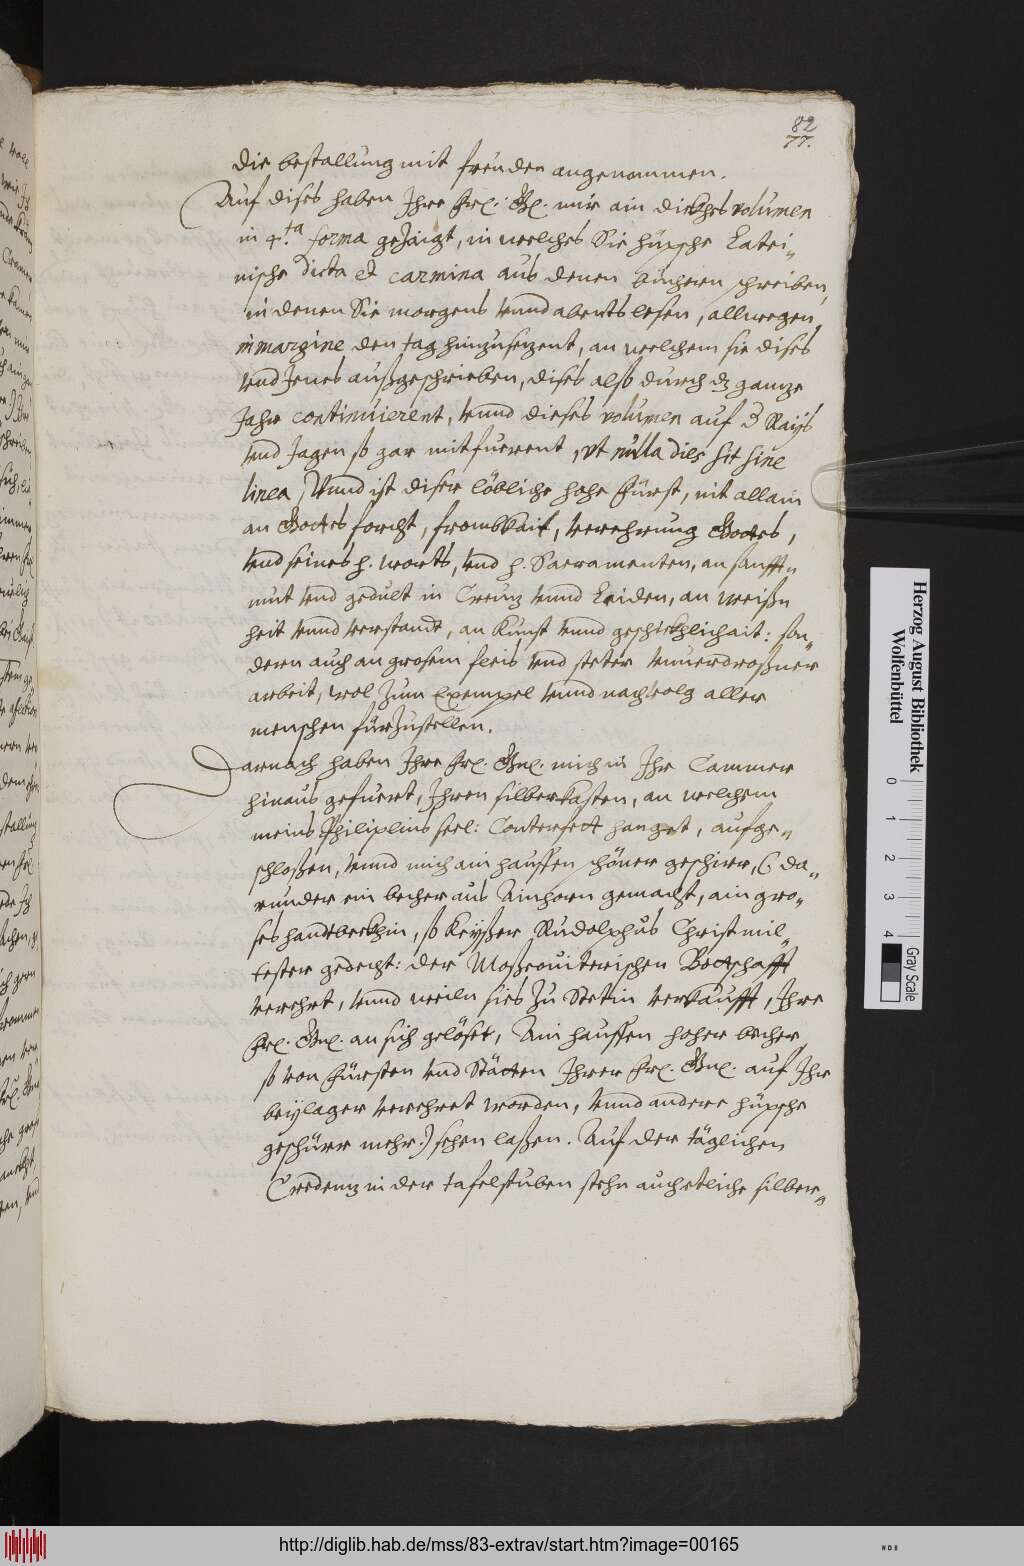 82
77.
die bestallung mit freuden angenommen.
Auf dises haben Ihre Frl: Gl. mir ain dickhes volumen
in 4.ta forma gezaigt, in welches Sie hüpsche Latei„
nische dicta et carmina aus denen büchern schreiben,
in denen Sie morgens vnnd abents lesen, allwegen
in margine den tag hinzusezent, an welchem sie dises
vnd Jenes außgeschrieben, dises alß durch dz ganze
Jahr continuierent, vnnd dieses volumen auf Rays
vnd Jagen so gar mitfuerent, vt nulla dies sit sine
linea, Vnnd ist diser löbliche hohe Fürst, nit allain
an Gottes forcht, frombkait, verehrung Gottes,
vnd seines h. worts, vnd h. Sacramenten, an sanfft„
mut vnd gedult in Creuz vnnd Leiden, an weißn
heit vnnd verstandt, an Kunst vnnd geschickhlichait: son„
dern auch an grosem fleis vnd steter vnuerdroßner
arbeit, wol zum Exempel vnnd nachuolg aller
menschen fürzustellen.
Darnach haben Ihre Frl. Gnl. mich in Ihr Cammer
hinaus gefuert, Ihren silberkasten, an welchem
meins Philiplins seel: Conterfect hanget, aufge„
schloßen, vnnd mich ain hauffen schöner geschirr, (: da„
runder ein becher aus Ainhorn gemacht, ain gro„
ses handtbeckhin, so Keyßer Rudolphus Christ mil„
tester gedecht: der Moßcouiterischen Bottschafft
verehrt, vnnd weiln sies zu Stetin verkaufft, Ihre
Frl. Gnl. an sich gelöset, Ain hauffen hoher becher
so von Fürsten vnd Stätten Ihrer Frl. Gnl. auf Ihr
beylager verehret worden, vnnd andere hüpsche
geschürr mehr:) sehen laßen. Auf der täglichen
Credenz in der tafelstuben stehn auch etliche silber„
Herzog August Bibliothek
Wolfenbüttel
0 1 2 3 4
Gray Scale
http://diglib.hab.de/mss/83-extrav/start.htm?image=00165